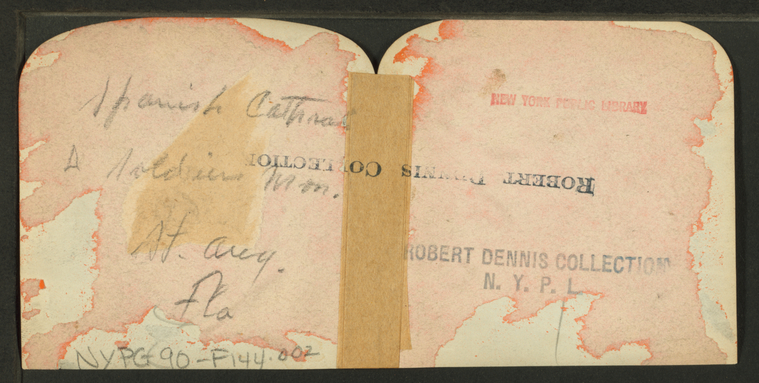 Spanish Cathral
& Soldiers Mon.
St. Aug.
Fla
NYPG 90-F144.002
NEW YORK PUBLIC LIBRARY
ROBERT DENNIS COLLECTION
ROBERT DENNIS COLLECTION
N. Y. P. L